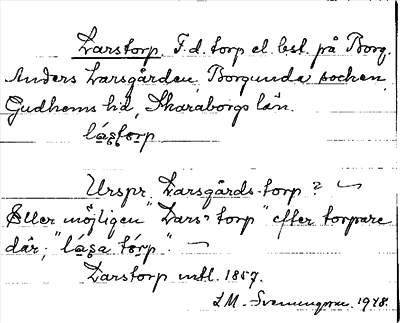 Larstorp. F.d. torp el. bst. på Borg.
Anders Larsgården, Borgunda socken,
Gudhems hd, Skaraborgs län.
lástòrp
Urspr. Larsgårds-torp?
Eller möjligen "Lars' torp" efter torpare
där; "lása tórp".
Larstorp mtl. 1857.
LM. Svenungsson. 1948.